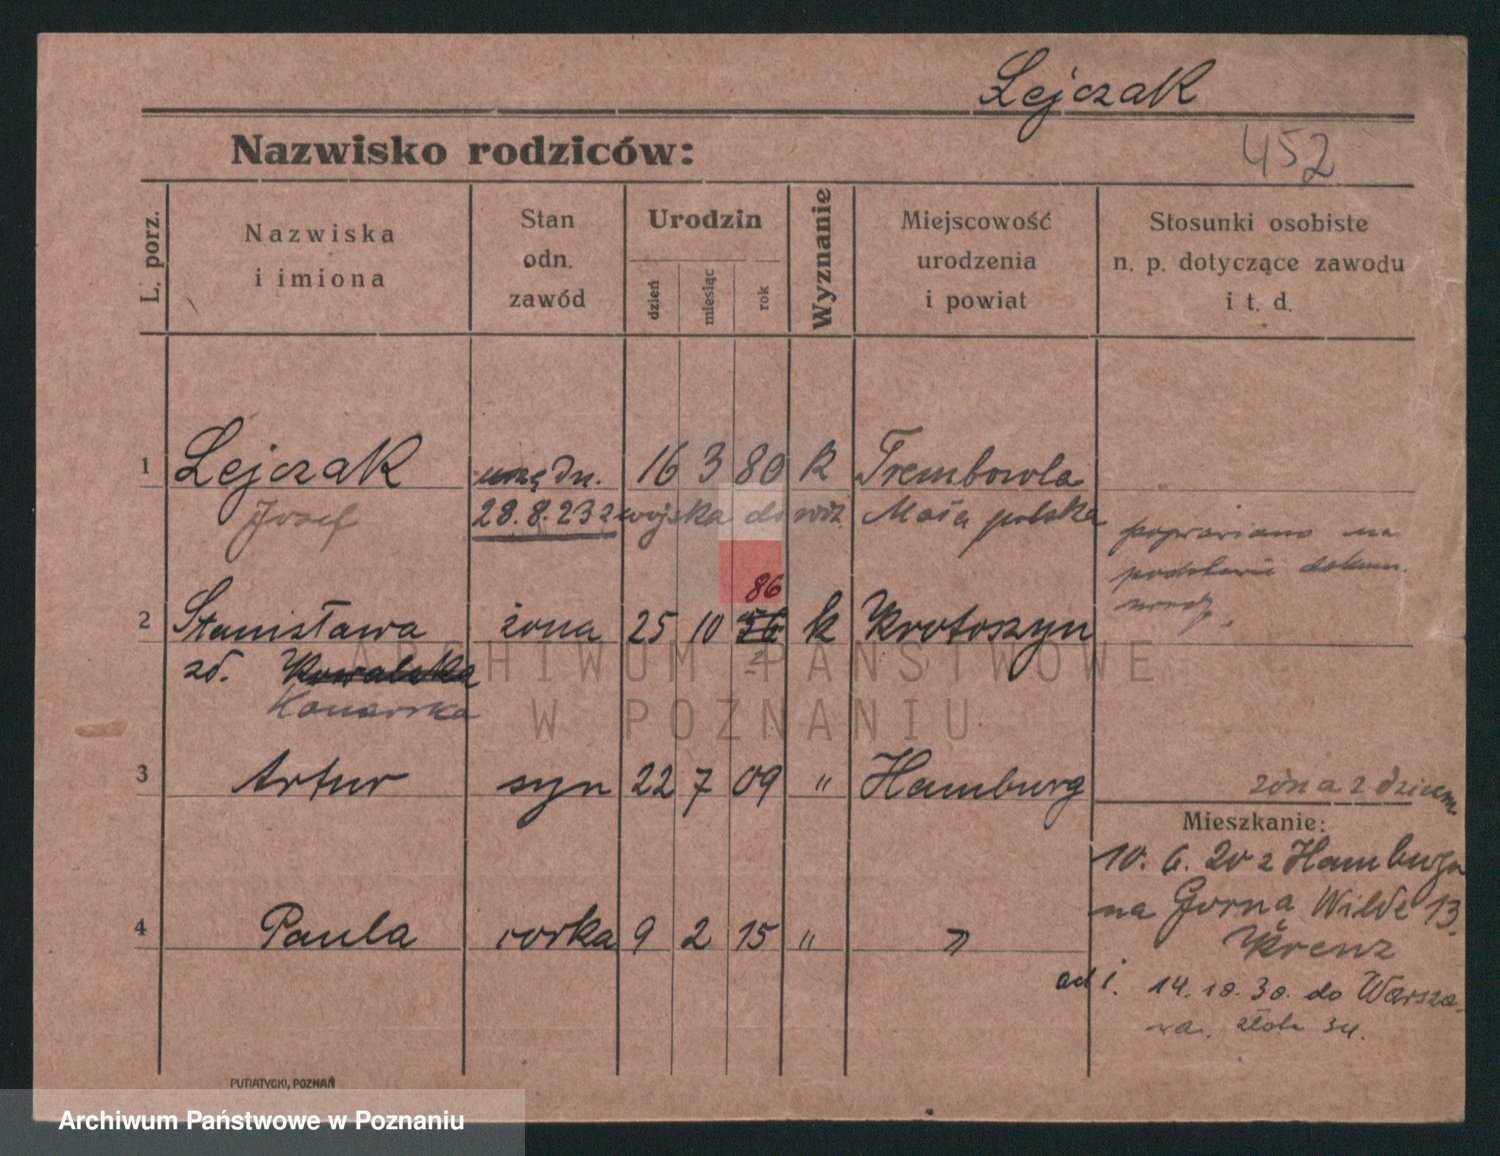 Lejczak
Nazwisko rodziców:
452
L. porz.
Nazwiska
i imiona
Stan
odn.
zawód
Urodzin
dzień
miesiąc
rok
Wyznanie
Miejscowość
urodzenia
i powiat
Stosunki osobiste
n. p. dotyczące zawodu
i t. d.
1 Lejczak urzędn. 16 3 80 k Trembowla
Józef 28.8.23 z wojska do Mała polska
poprawiono na
podstawie dokum.
urzęd.
86
2 Stanisława żona 25 10 56 k Krotoszyn
zd. Kowalska
2
Konarska
ARCHIWUM PAŃSTWOWE
W POZNANIU
3 Artur syn 22 7 09 " Hamburg
żona z dziećm
Mieszkanie:
10.6.20 z Hamburga
na Gorna Wilde 13.
Krenz
4 Paula corka 9 2 15 " "
ad 1. 14.10.30. do Warsza-
wa. Złota 34.
PUTIATYCKI, POZNAŃ
Archiwum Państwowe w Poznaniu